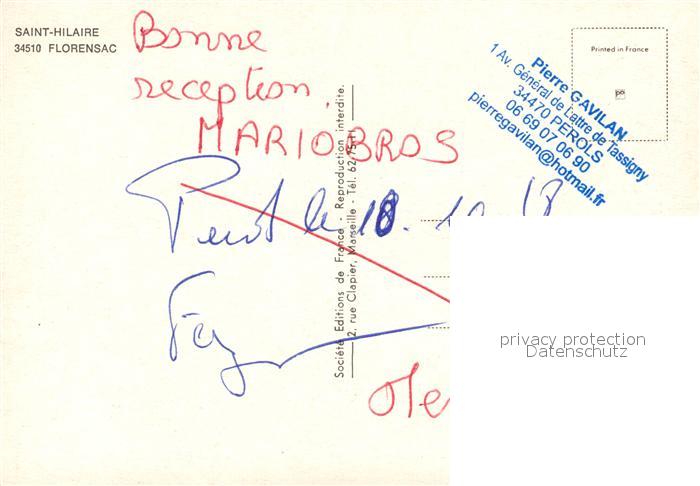 SAINT-HILAIRE
34510 FLORENSAC
Bonne
reception
MARIO.BROS
le 18.
Société Editions de France - Reproduction interdite.
2, rue Clapier, Marseille - Tél. 62
Printed in France
Pierre GAVILAN
1 Av. Général de Lattre de Tassigny
34470 PEROLS
06 69 07 06 90
pierregavilan@hotmail.fr
privacy protection
Datenschutz